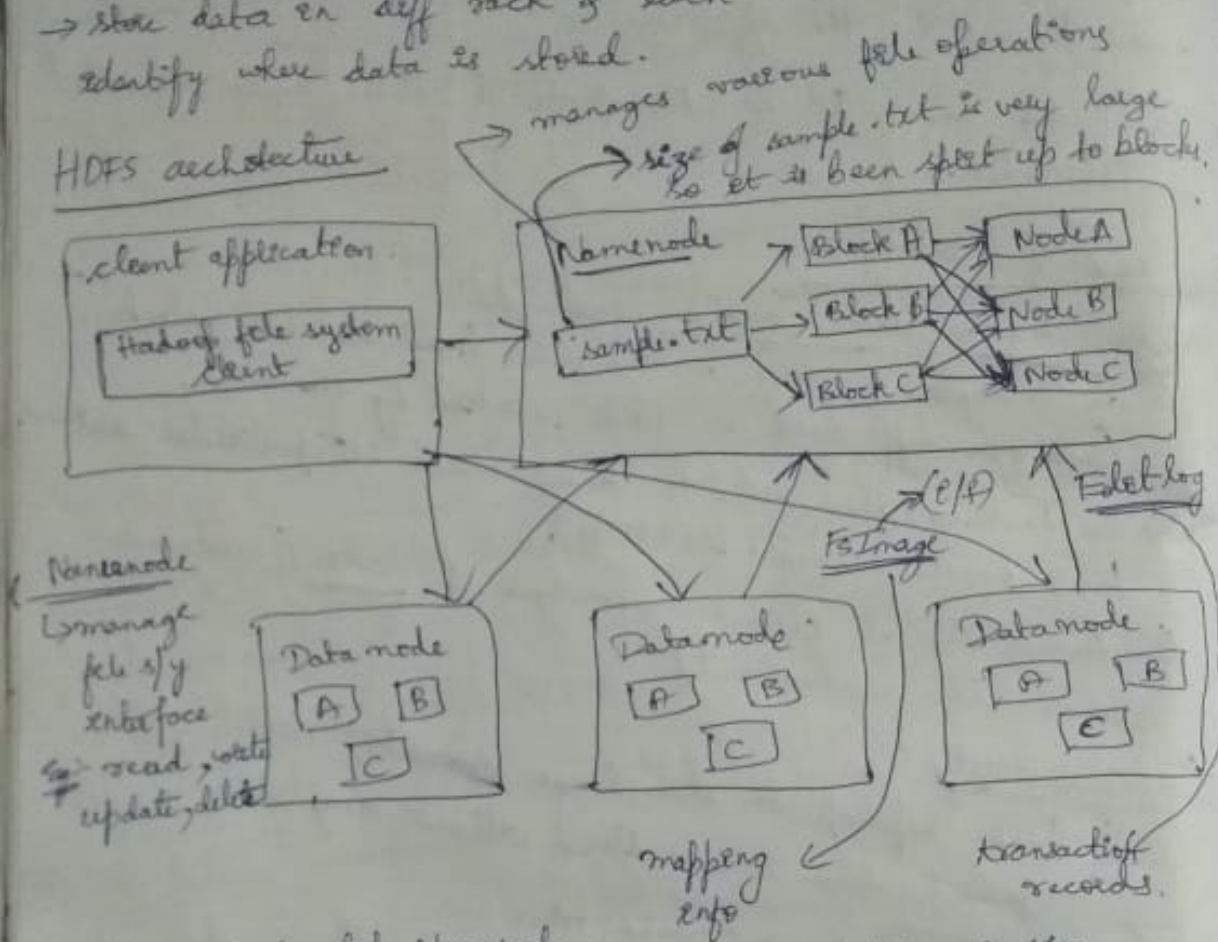 → store data in diff rack
identify where data is stored.
→ manages various file operations
→ size of sample.txt is very large
so it is been split up to blocks.
HDFS architecture
client application
Hadoop file system
client
Namenode
sample.txt
Block A
Block B
Block C
Node A
Node B
Node C
FsImage
Editlog
Namenode
↳ manage
file s/y
interface
read, write
update, delete
Data node
A B
C
Datanode
A B
C
Datanode
A B
C
mapping
info
transaction
records.